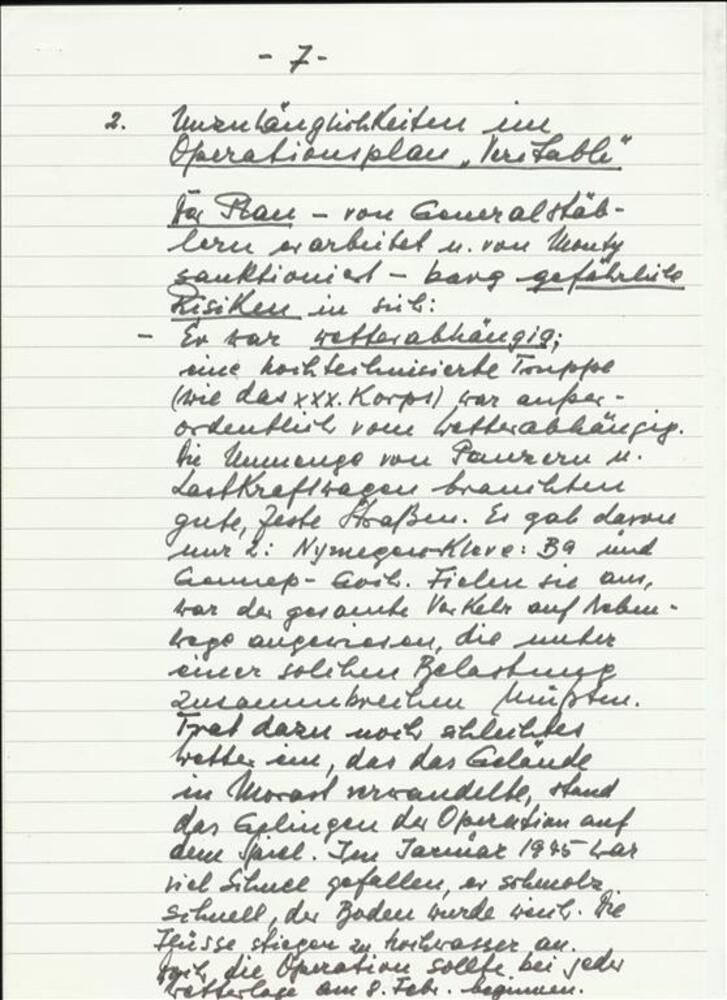 - 7 -
2. Unzulänglichkeiten im
Operationsplan „Veritable"
Der Plan - von Generalstäb-
lern erarbeitet u. von Monty
sanktioniert - barg gefährliche
Risiken in sich:
- Er war wetterabhängig;
eine hochtechnisierte Truppe
(wie das XXX. Korps) war außer-
ordentlich vom Wetter abhängig.
Die Unmenge von Panzern u.
Lastkraftwagen brauchten
gute, feste Straßen. Es gab davon
nur 2: Nymegen-Kleve: B9 und
Gennep - Goch. Fielen sie aus,
war der gesamte Verkehr auf Neben-
wege angewiesen, die unter
einer solchen Belastung
zusammenbrechen mußten.
Trat dazu noch schlechtes
Wetter ein, das das Gelände
in Morast verwandelte, stand
das Gelingen der Operation auf
dem Spiel. Im Januar 1945 war
viel Schnee gefallen, er schmolz
schnell, der Boden wurde weich. Die
Flüsse stiegen zu Hochwasser an.
Doch die Operation sollte bei jeder
Wetterlage am 8. Febr. beginnen.